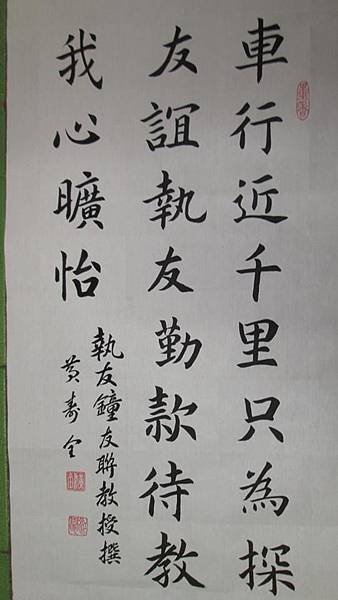 車行近千里只為探
友誼執友勤款待教
我心曠怡
執友鐘友聯教授撰
黃壽全